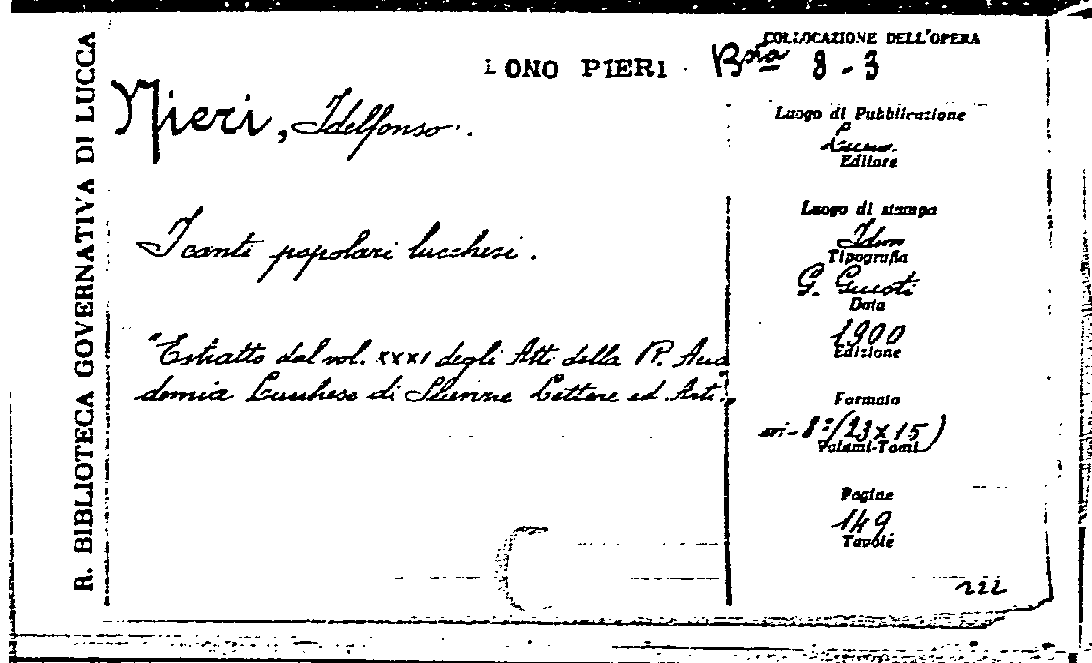 R. BIBLIOTECA GOVERNATIVA DI LUCCA
COLLOCAZIONE DELL'OPERA
ONO PIERI Bsta 8-3
Nieri, Idelfonso.
I canti popolari lucchesi.
"Estratto dal vol. XXXI degli Atti della R. Acca
demia Lucchese di Scienze Lettere ed Arti."
Luogo di Pubblicazione
Lucca.
Editore
Luogo di stampa
Idem
Tipografia
G. Giusti
Data
1900
Edizione
Formato
8º (23x15)
Volumi-Tomi
Pagine
149
Tavole